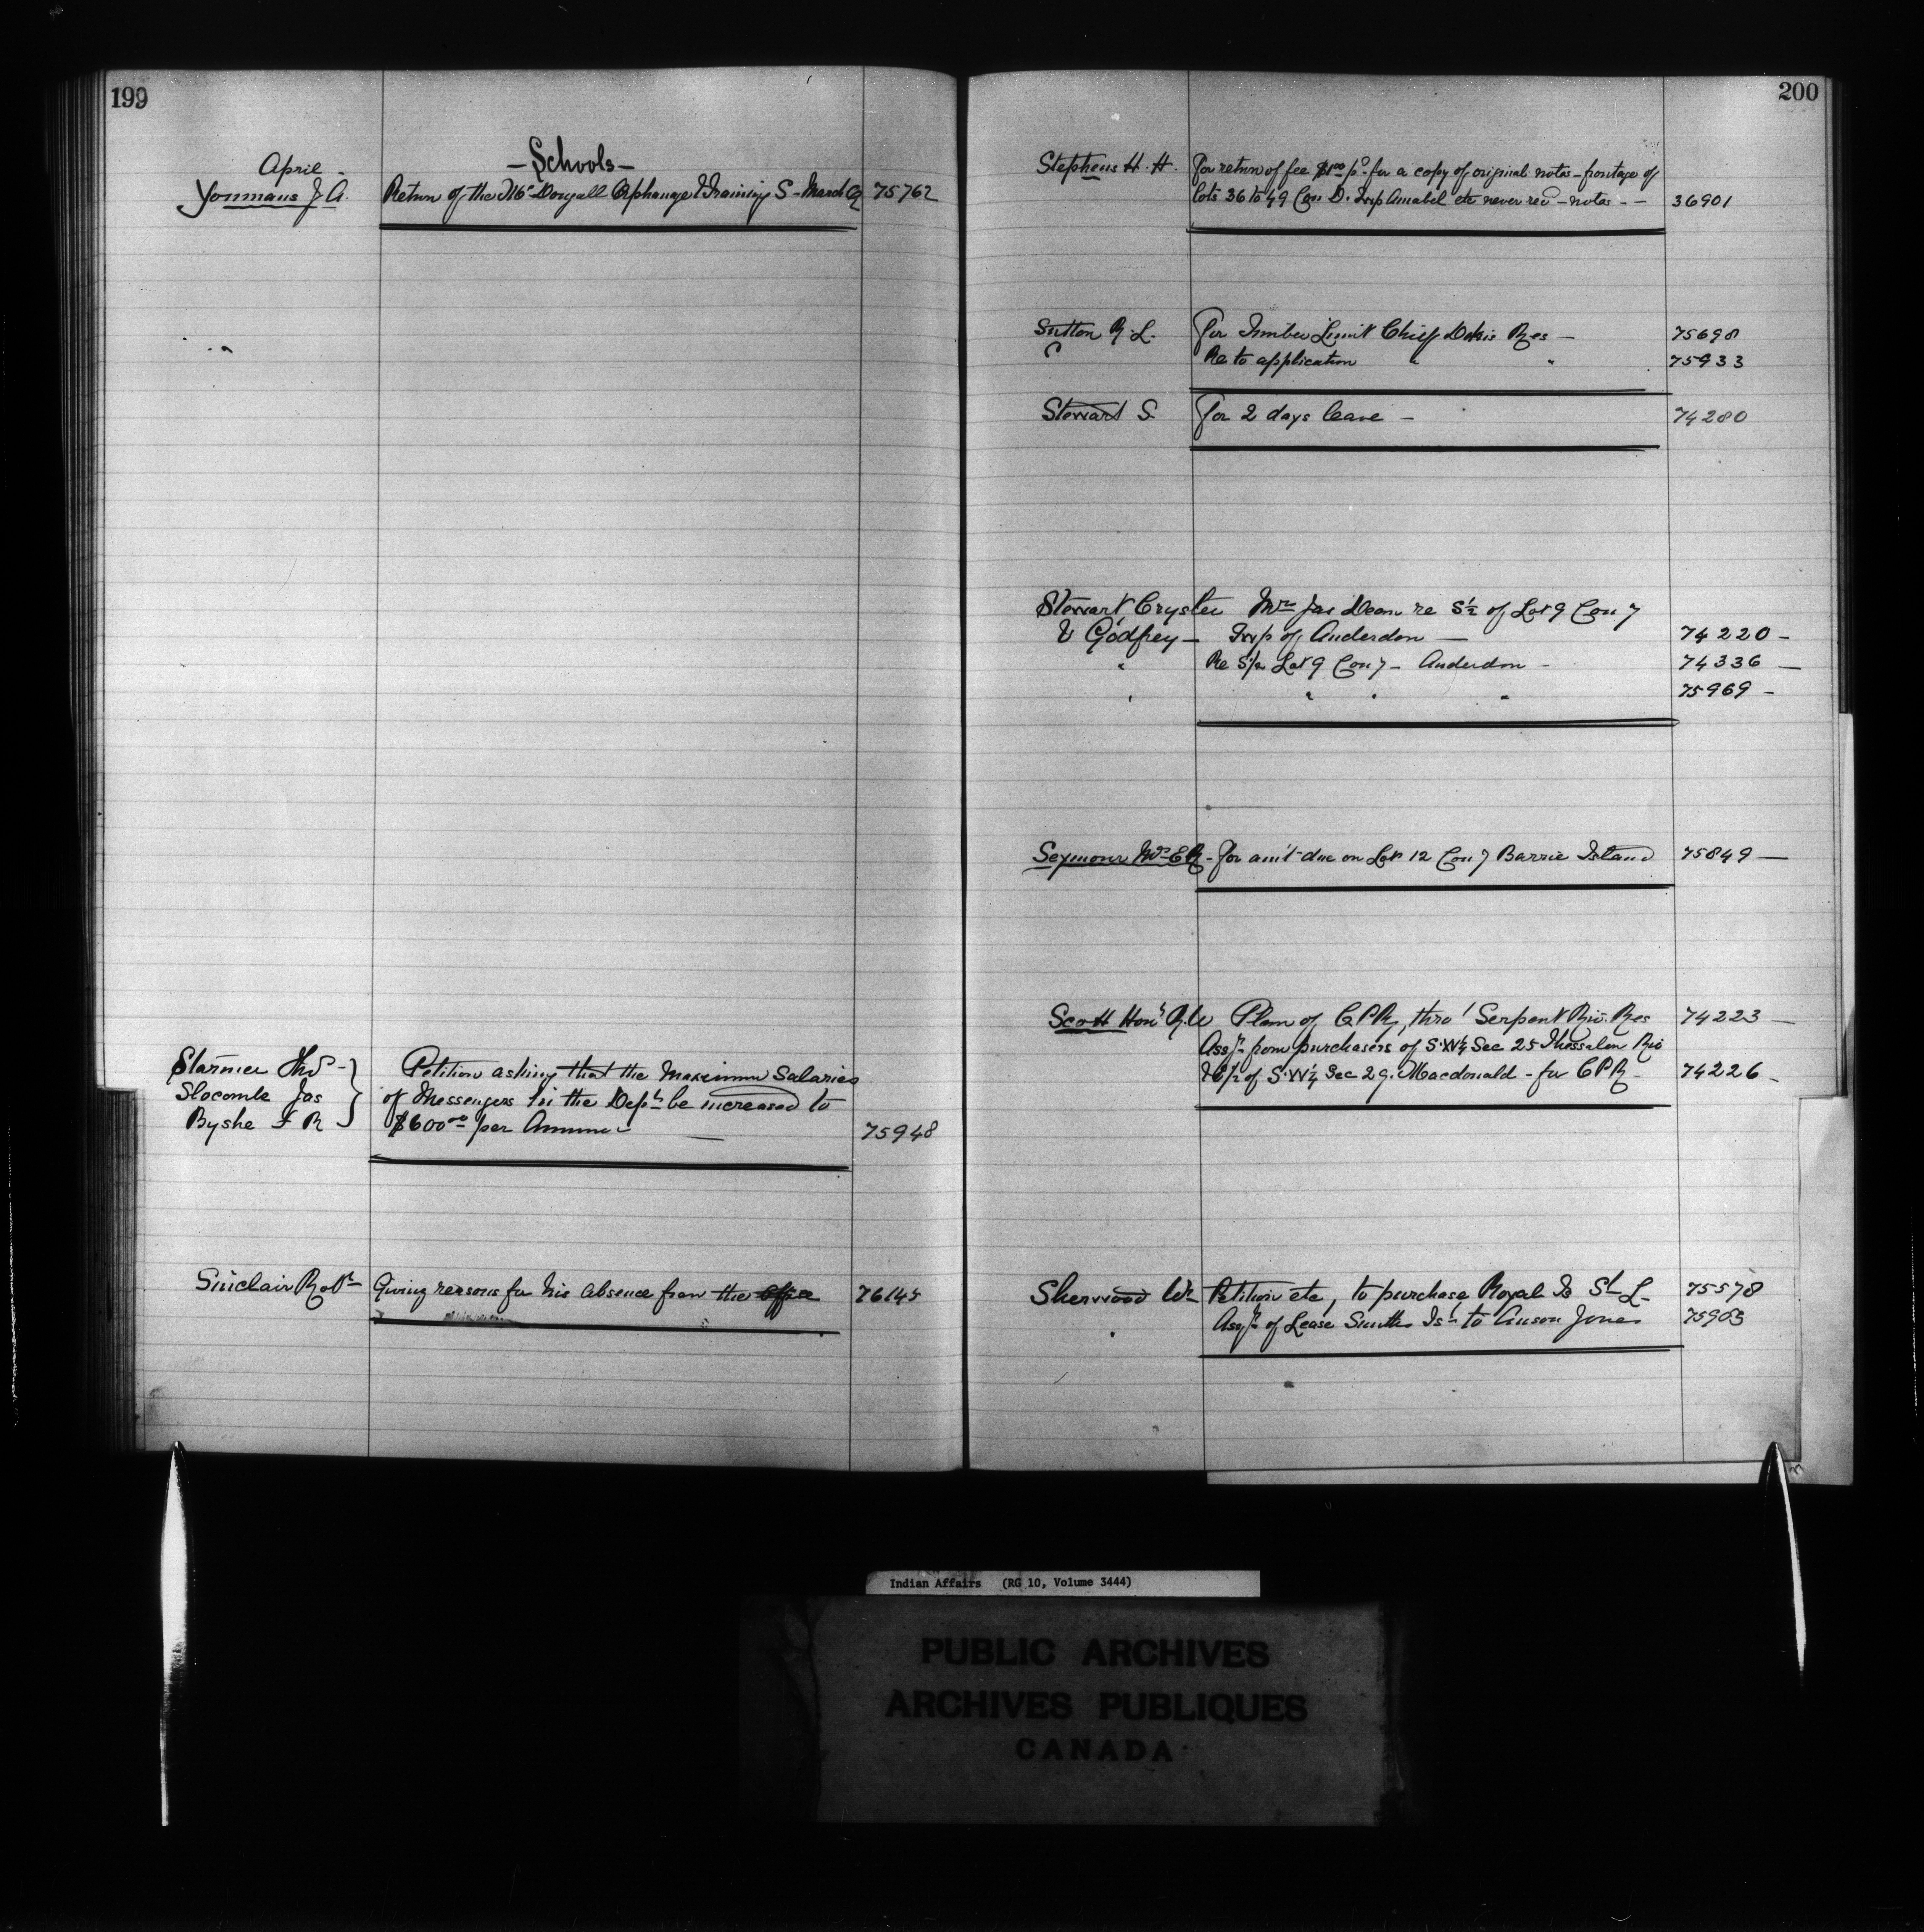 199
April -
- Schools -
Youmans J. A. Return of the McDougall Orphanage & Training S - March Q 75762
Starmer Thos -
Slocombe Jas
Byshe F R
Petition asking that the Maximum Salaries
of Messengers in the Dept be increased to
$600.00 per Annum - 75948
Sinclair Robt Giving reasons for his absence from the Office 76145
200
Stephens H. H. For return of fee $1.00 pd for a copy of original notes - frontage of
lots 36 to 49 Con D. Twp Amabel etc never recd - notes - - 36901
Sutton R. L. For Timber Limit Chief Dokis Res - 75698
Re to application " " 75933
Stewart S. For 2 days leave - 74280
Stewart Cryster Mrs Jas Dean re S½ of Lot 9 Con 7
& Godfrey - Twp of Anderdon - 74220 -
" Re S½ Lot 9 Con 7 - Anderdon - 74336 -
" " " " 75969 -
Seymour Mrs E R - for am't due on Lot 12 Con 7 Barrie Island 75849 -
Scott Hon' R. W Plan of C.P.R, thro' Serpent Riv. Res 74223 -
Assgt from purchasers of S.W¼ Sec 25 Thessalon Riv
& E½ of S.W¼ Sec 29. Macdonald - for CPR - 74226 -
Sherwood Wm Petition etc, to purchase Royal Is St L - 75578
" Assgt of Lease Smiths Isd to Anson Jones 75903
Indian Affairs (RG 10, Volume 3444)
PUBLIC ARCHIVES
ARCHIVES PUBLIQUES
CANADA